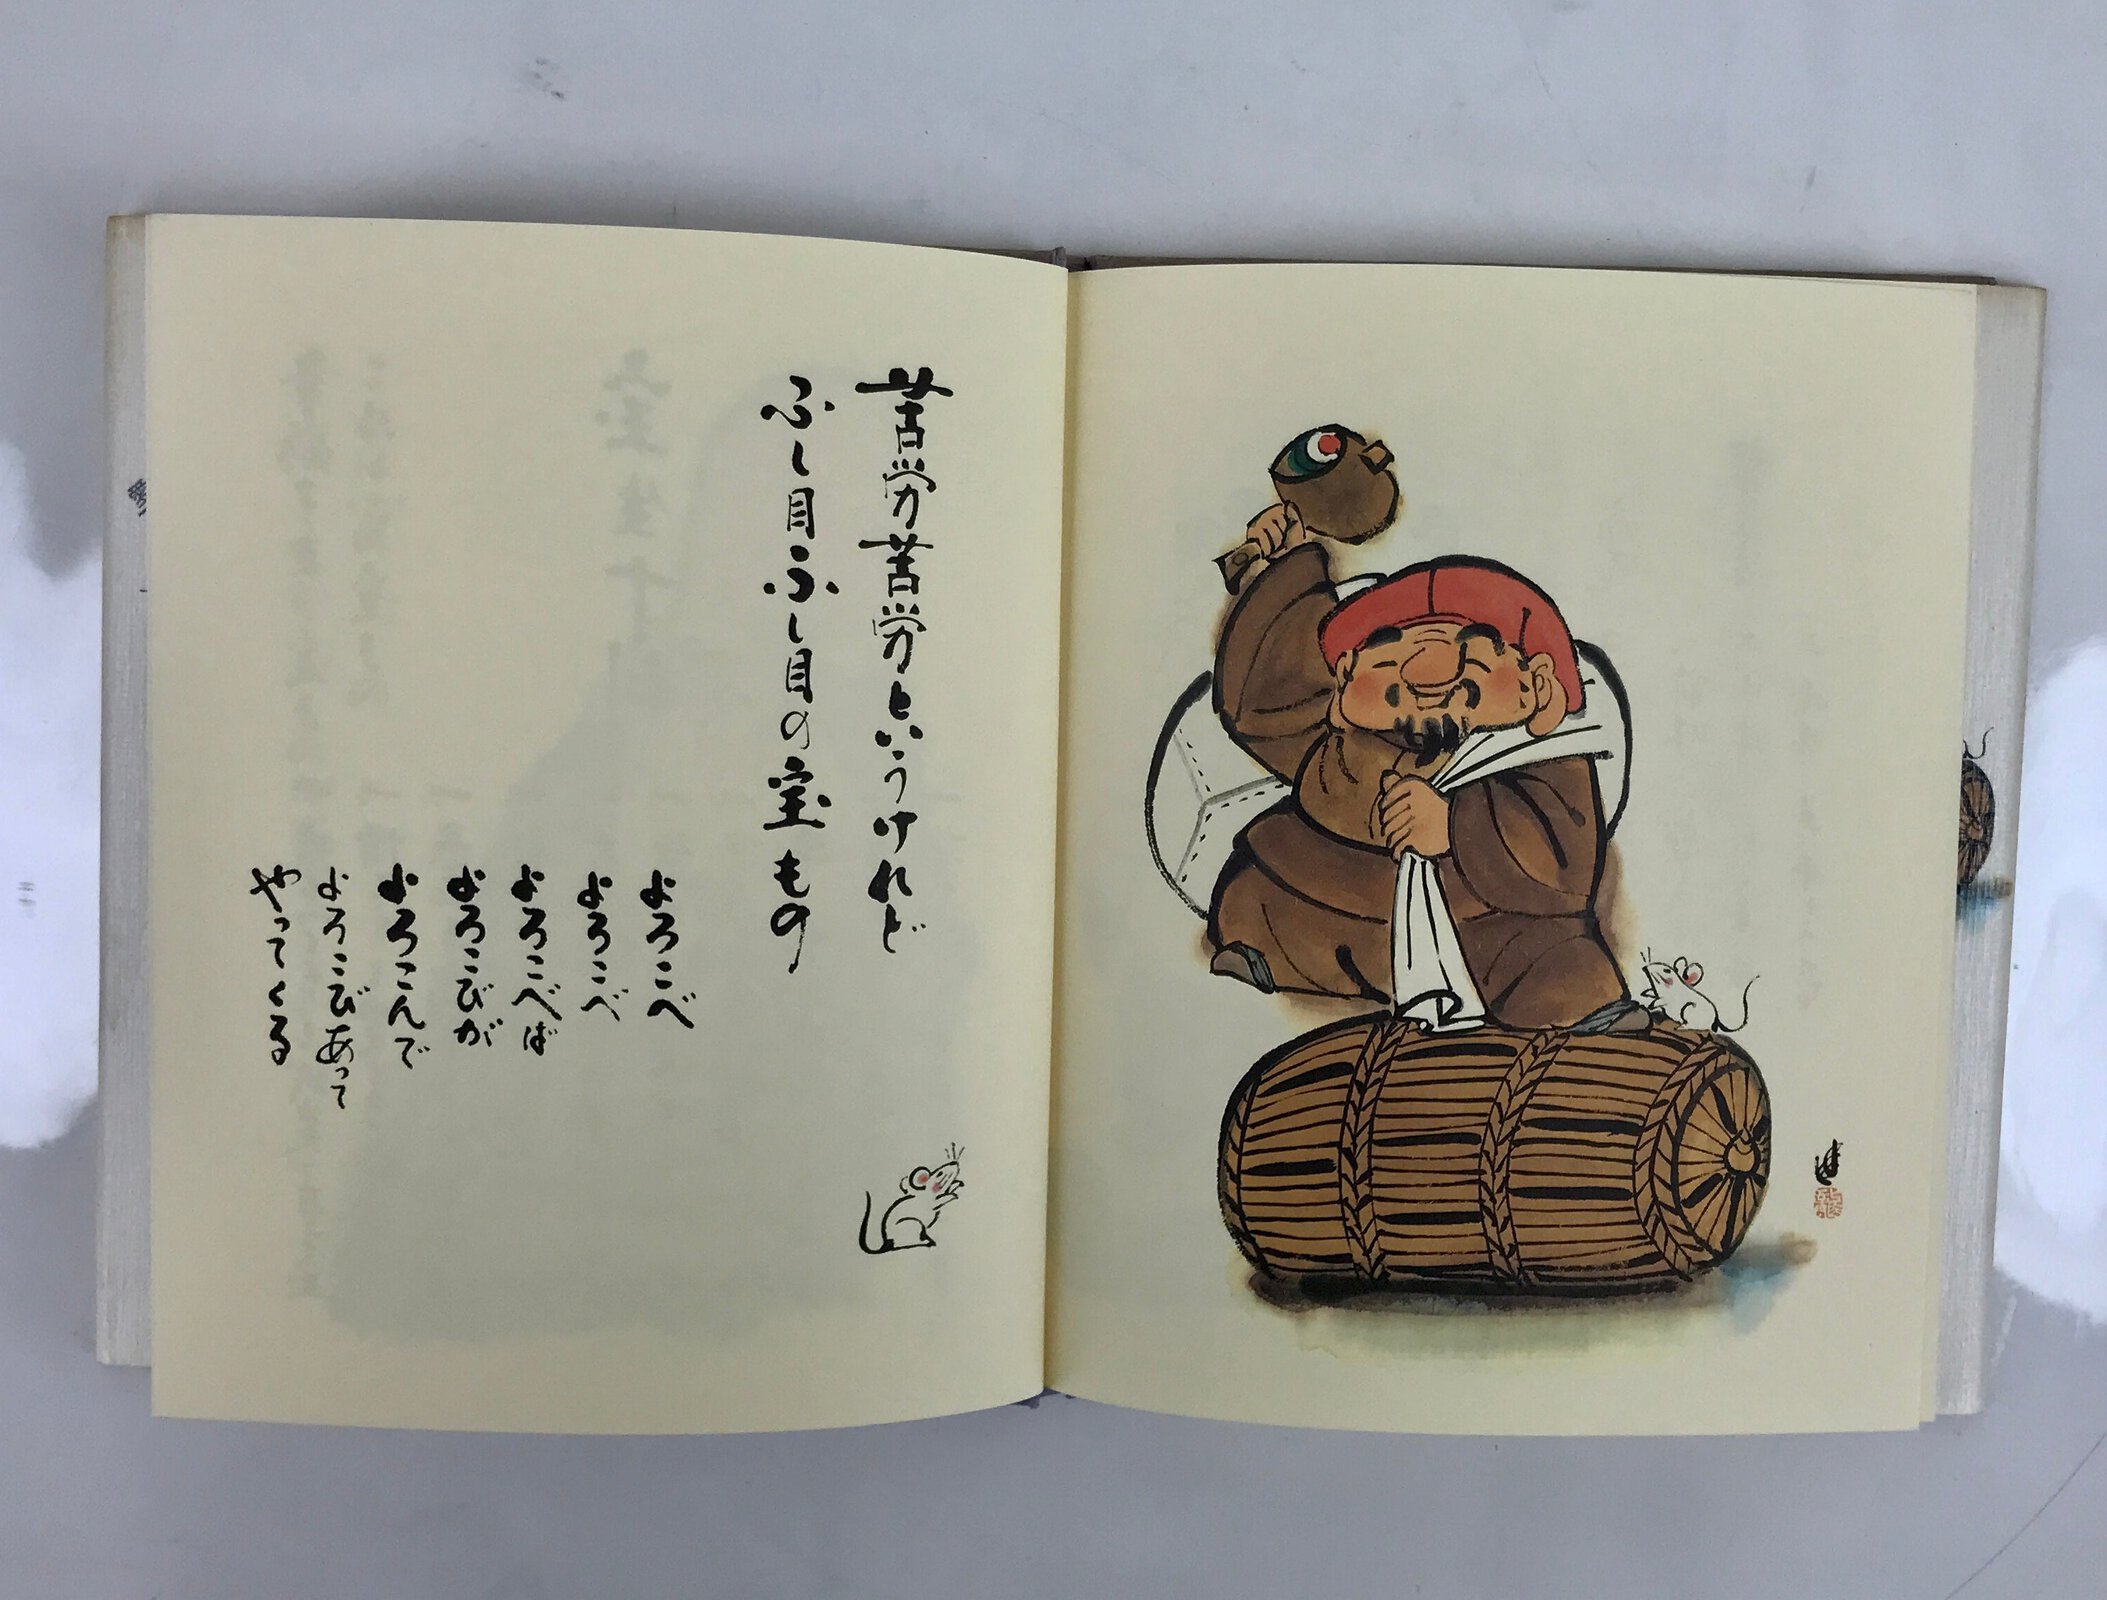 苦労苦労というけれど
ふし目ふし目の宝もの
よろこべ
よろこべ
よろこべば
よろこびが
よろこんで
よろこびあって
やってくる